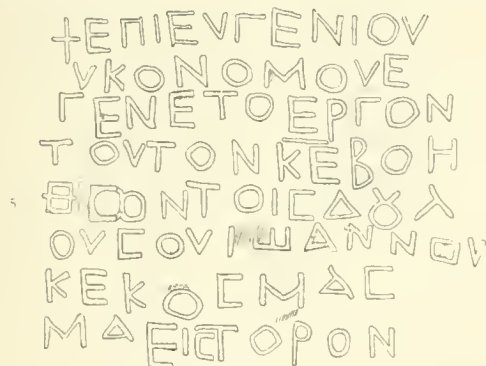 +ΕΠΙΕΥΓΕΝΙΟΥ
ΥΚΟΝΟΜΟΥΕ
ΓΕΝΕΤΟΕΡΓΟΝ
ΤΟΥΤΟΝΚΕΒΟΗ
ΘΕCΟΝΤΟΙCΔȢΛ
ΟΥCΟΥΙΩΑΝΝΟΥ
ΚΕΚΟCΜΑC
ΜΑΕΙCΤΟΡΟΝ